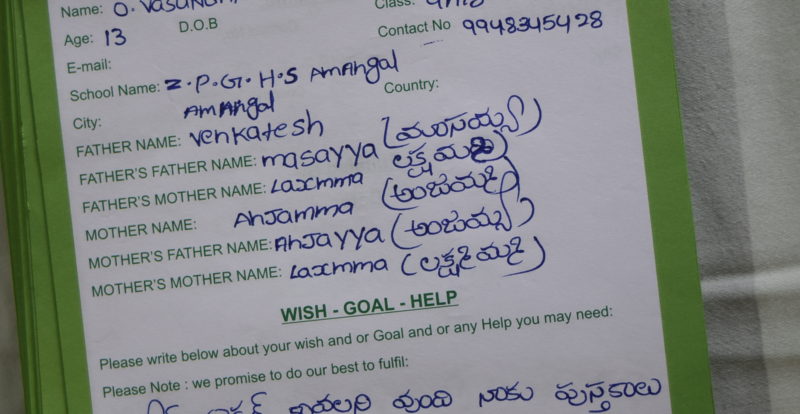 Name: O. Vasund
Class: 9th
Age: 13 D.O.B
Contact No 9948345428
E-mail:
School Name: Z.P.G.H.S Amangal
Country:
City: Amangal
FATHER NAME: Venkatesh
FATHER'S FATHER NAME: masayya (మాసయ్య)
FATHER'S MOTHER NAME: Laxmma లక్ష్మమ్మ
MOTHER NAME: Anjamma (అంజమ్మ)
MOTHER'S FATHER NAME: Anjayya (అంజయ్య)
MOTHER'S MOTHER NAME: Laxmma (లక్ష్మమ్మ)
WISH - GOAL - HELP
Please write below about your wish and or Goal and or any Help you may need:
Please Note : we promise to do our best to fulfil:
కావలని వుంది నాకు పుస్తకాలు